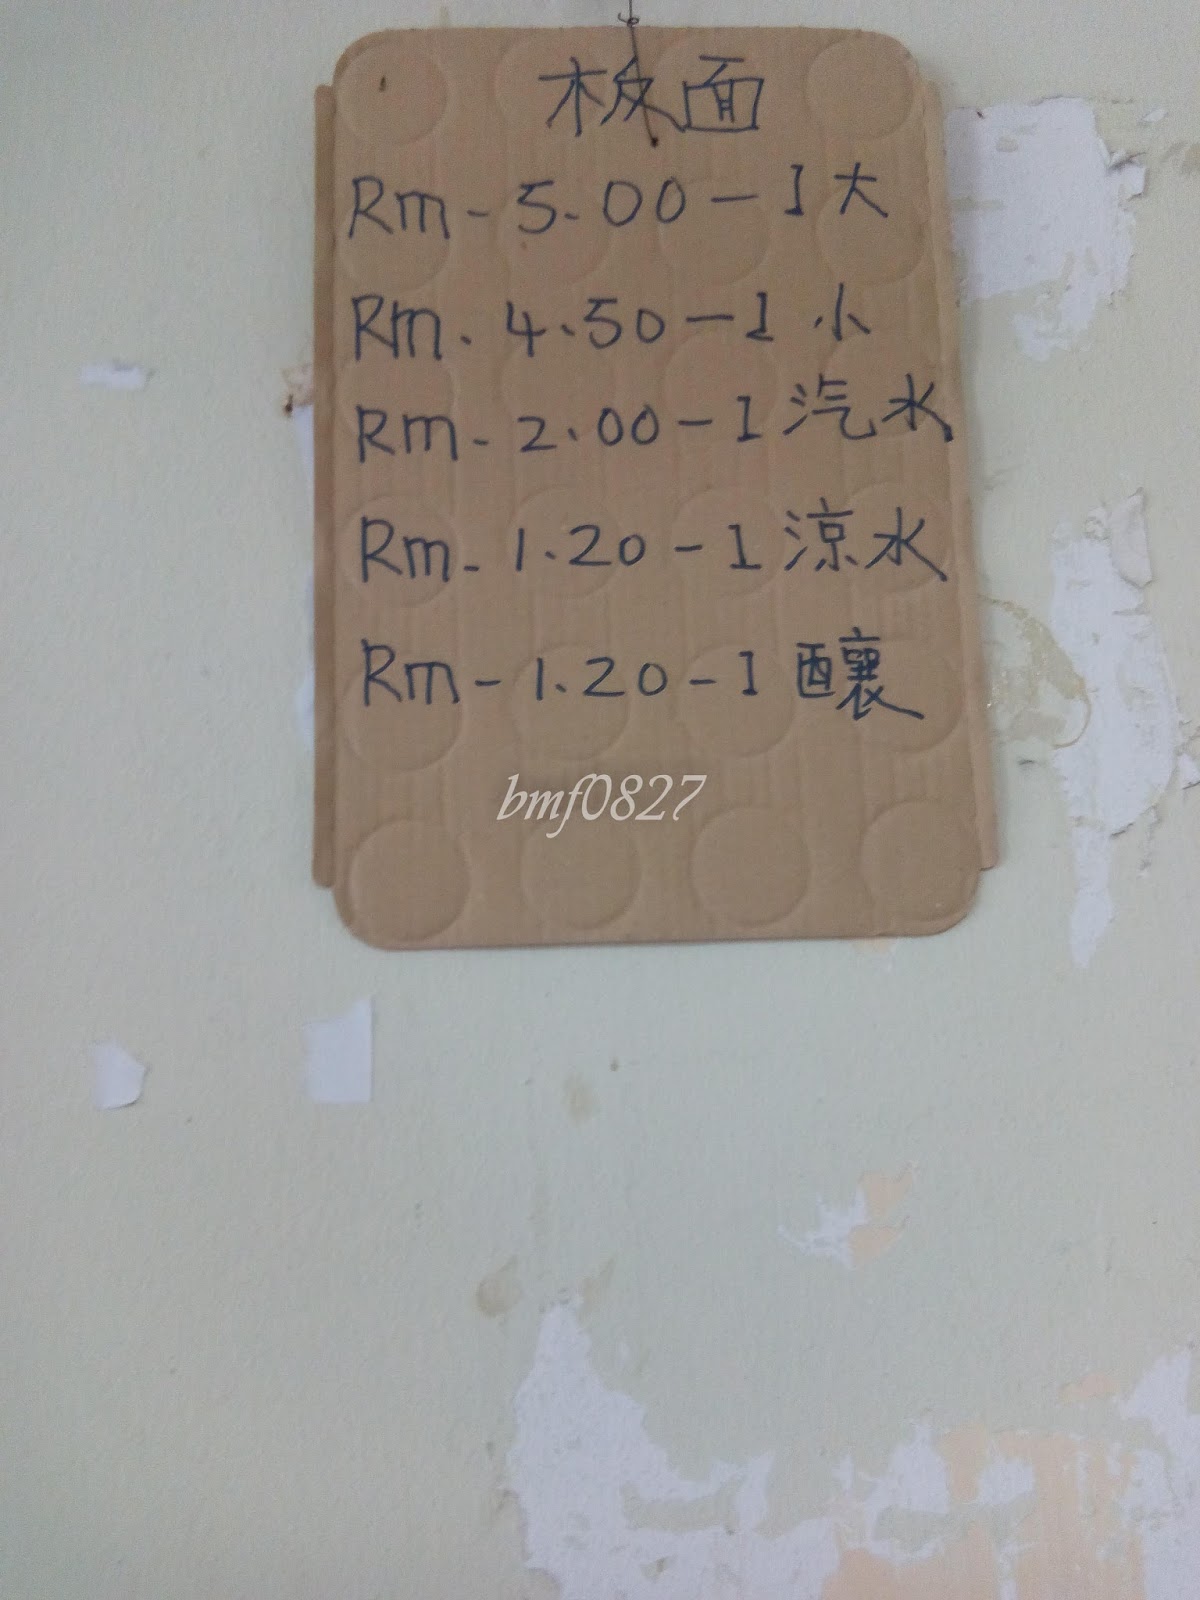 板面
Rm - 5.00 - 1 大
Rm. 4.50 - 1 小
Rm - 2.00 - 1 汽水
Rm - 1.20 - 1 涼水
Rm - 1.20 - 1 釀
bmf0827